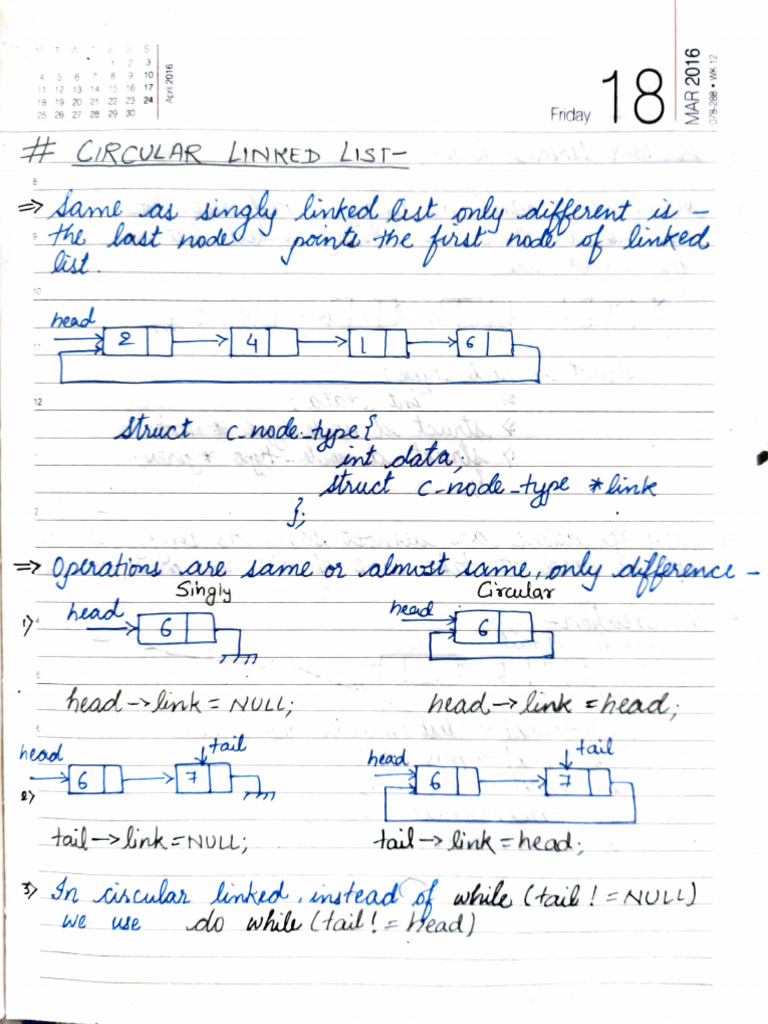 M T W T F S S
1 2 3
4 5 6 7 8 9 10
11 12 13 14 15 16 17
18 19 20 21 22 23 24
25 26 27 28 29 30
April 2016
Friday 18
MAR 2016
078-288 • WK 12
# CIRCULAR LINKED LIST-
8
⇒ Same as singly linked list only different is -
9
the last node points the first node of linked
list.
10
head
11
2 4 1 6
12
struct c_node_type{
int data;
struct c_node_type *link
2
};
⇒ Operations are same or almost same, only difference -
Singly Circular
1) head 6 head 6
4
5
head → link = NULL; head → link = head;
6
head 6 7 tail head 6 7 tail
2)
tail → link = NULL; tail → link = head;
3) In circular linked, instead of while (tail != NULL)
we use do while (tail != head)